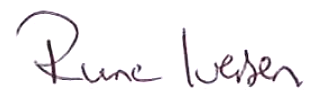 Rune Iversen